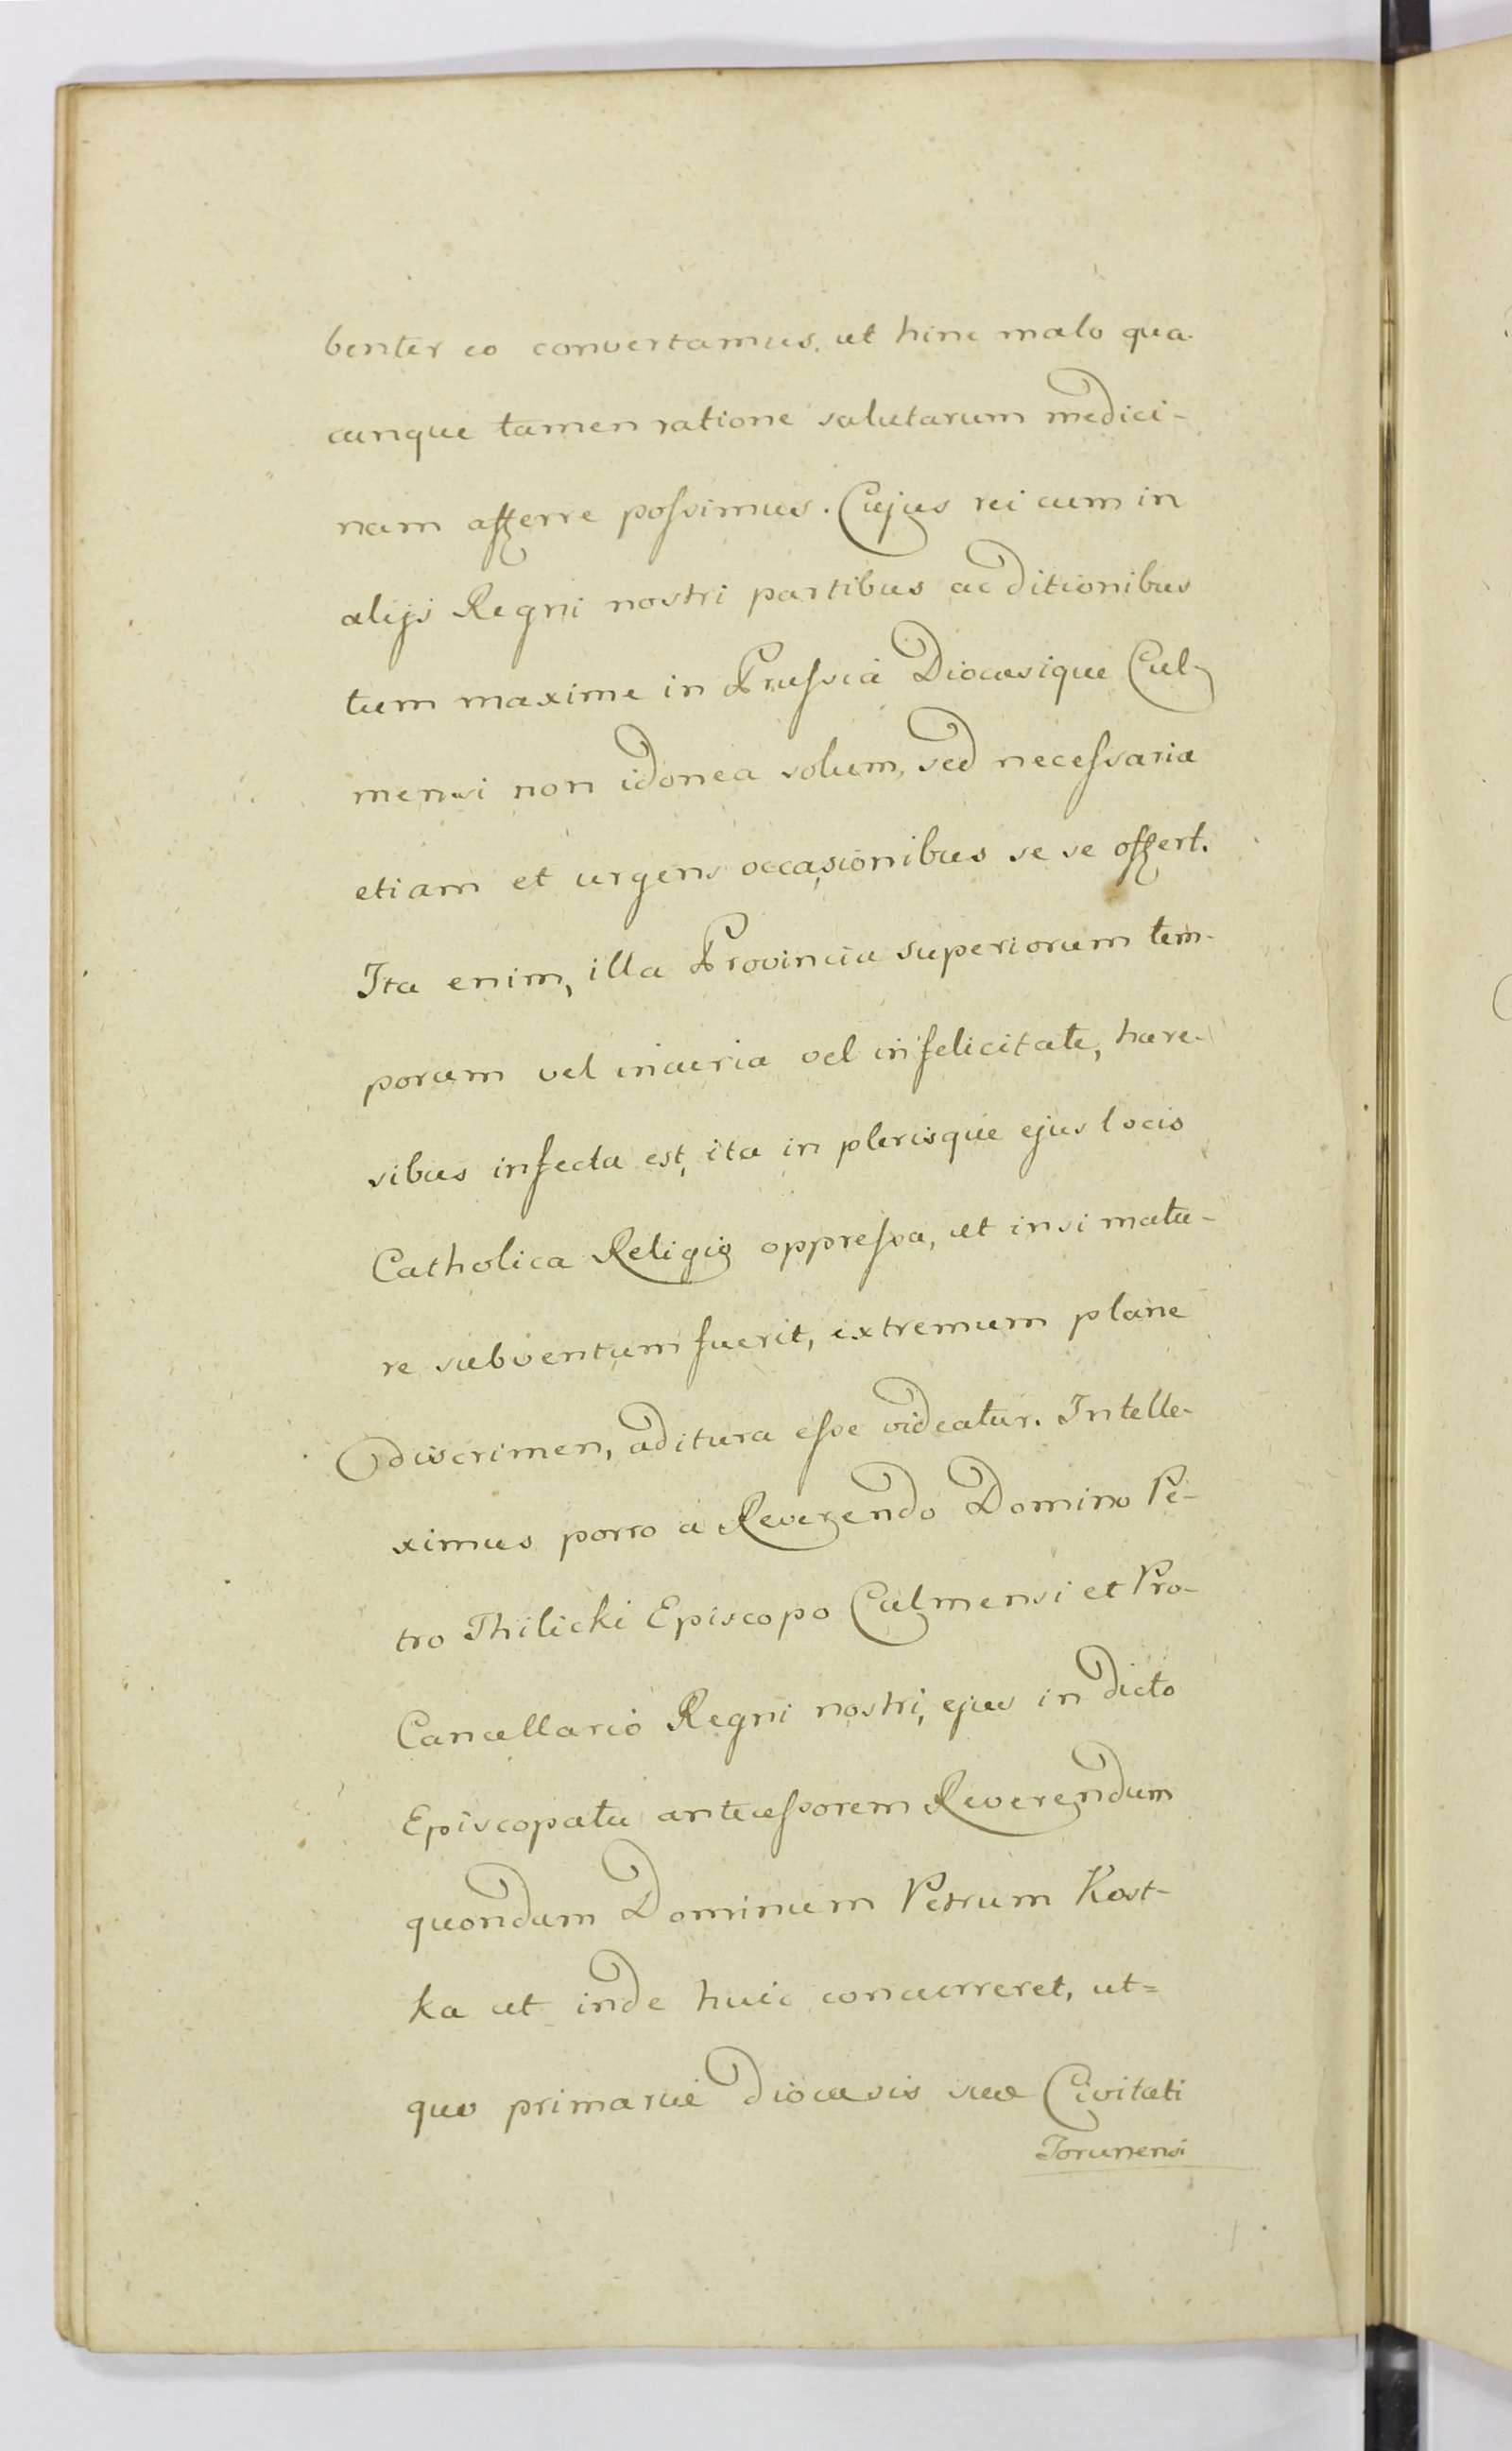 benter eo convertamus, ut hinc malo qua-
cunque tamen ratione salutarum medici-
nam afferre poſsimus. Cujus rei cum in
alijs Regni nostri partibus ac ditionibus
tum maxime in Pruſsia Diocæsique Cul-
mensi non idonea solum, sed neceſsaria
etiam et urgens occasionibus se se offert.
Ita enim, illa Provincia superiorum tem-
porum vel incuria vel infelicitate, hære-
sibus infecta est, ita in plerisque ejus locis
Catholica Religio oppreſsa, ut insi matu-
re subventum fuerit, extremum plane
discrimen, aditura eſse videatur. Intelle-
ximus porro a Reverendo Domino Pe-
tro Thilicki Episcopo Culmensi et Pro-
Cancellario Regni nostri, ejus in dicto
Episcopatu anteceſsorem Reverendum
quondam Dominum Petrum Kost-
ka ut inde huic concurreret, ut=
que primariæ diocæsis suæ Civitati
Torunensi